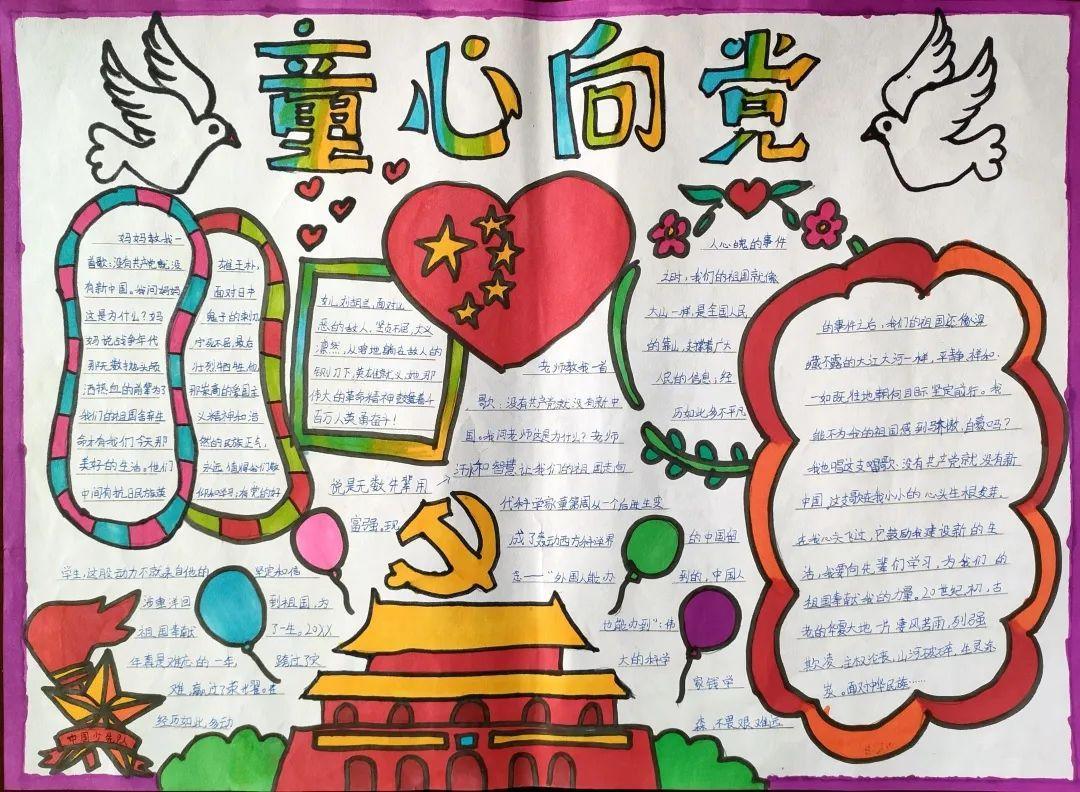 童心向党
妈妈教我一
首歌:没有共产党就没
有新中国。我问妈妈
这是为什么?妈
妈说战争年代
那无数抛头颅
洒热血的前辈为了
我们的祖国舍弃生
命才有我们今天那
美好的生活。他们
中间有抗日民族英
雄王朴,
面对日本
鬼子的刺刀
宁死不屈,最后
壮烈牺牲,他
那崇高的爱国主
义精神和浩
然的民族正气,
永远值得我们敬
仰和学习;有党的好
女儿刘胡兰,面对凶
恶的敌人,坚贞不屈,大义
凛然,从容地躺在敌人的
铡刀下,英雄就义,她那
伟大的革命精神鼓舞着千
百万人英勇奋斗!
老师教我一首
歌:没有共产党就没有新中
国。我问老师这是为什么?老师
说是无数先辈用
汗水和智慧让我们的祖国走向
富强。现
代科学家童第周从一个后进生变
成了轰动西方科学界
的中国留
学生,这股动力不就来自他的
坚定和信
念——“外国人能办
到的,中国人
也能办到”;伟
大的科学
家钱学
森,不畏艰难远
涉重洋回
到祖国,为
祖国奉献
了一生。20XX
年真是难忘的一年,
跨过了灾
难,赢过了荣耀。在
经历如此多动
人心魄的事件
之时,我们的祖国就像
大山一样,是全国人民
的靠山,支撑着广大
人民的信息;经
历如此多不平凡
的事件之后,我们的祖国还像深
藏不露的大江大河一样,平静,祥和
一如既往地朝向目标坚定前行。我
能不为我的祖国感到骄傲,自豪吗?
我也唱这支唱歌:没有共产党就没有新
中国,这支歌在我小小的心头生根发芽,
在我心头飞过,它鼓励我建设新的生
活,我要向先辈们学习,为我们的
祖国奉献我的力量。20世纪初,古
老的华夏大地一片凄风苦雨,列强
欺凌,主权沦丧,山河破碎,生灵涂
炭。面对中华民族……
中国少先队